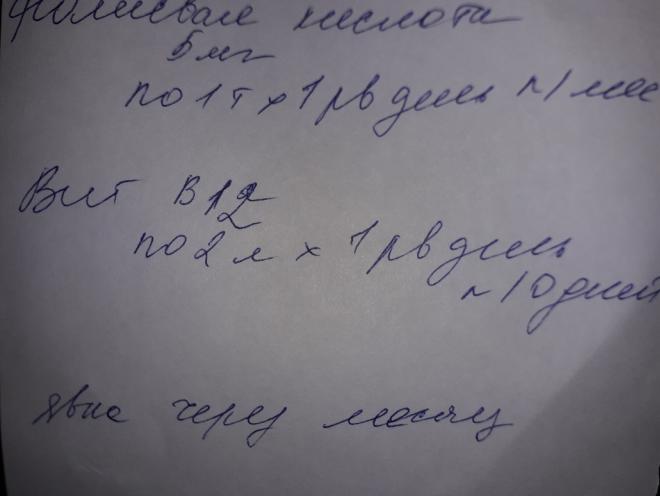 фолиевая кислота
5 мг
по 1 т х 1 р в день n 1 мес
Вит В12
по 2 л х 1 р в день
n 10 дней
явка через месяц